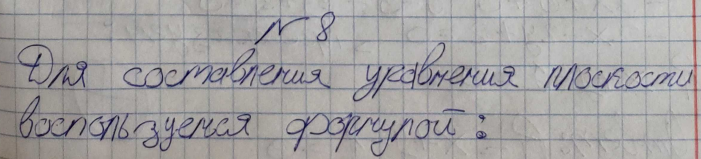 № 8
Для составления уравнения плоскости
воспользуемся формулой: